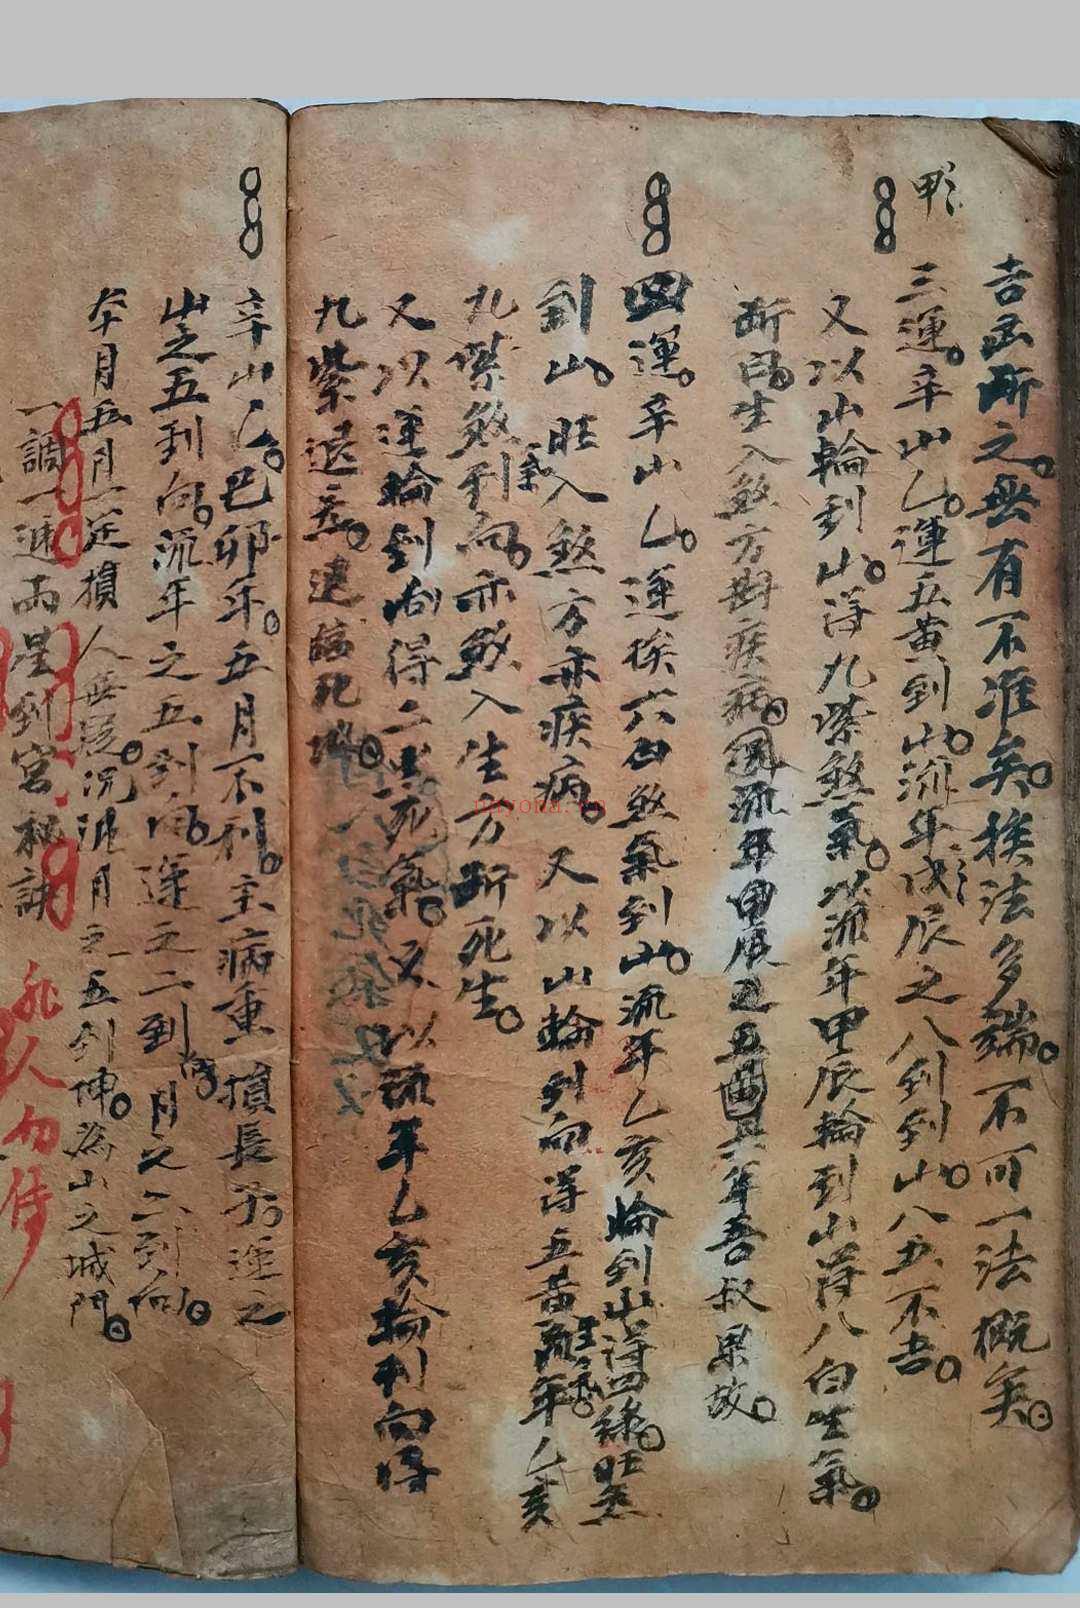 吉凶断之。無有不准矣。挨法多端。不可一法概矣。
甲
三運。辛山乙。運五黃到山。流年戊辰之八到到山。八五不吉。
又以山輪到山。淂九紫煞氣。以流年甲辰輪到山淂八白生氣。
断曰。生入煞方斟疾病。因流年甲辰之五酉丑年吾叔果故。
四運。辛山乙。運挨六白煞氣到山。流年乙亥輪到山淂四綠。旺氣
到山。旺入煞方亦疾病。又以山輪到向淂五黃旺氣。流年乙亥
九紫煞氣到向。亦煞入生方断死生。
又以運輪到向得二黑死氣。又以流年乙亥輪到向得
九紫退氣。運臨死地。
辛山乙。巳卯年。五月不利。主病重損長子。運之
山之五到向。流年之五到向。運之二到向。月之二到向。
本月五月一定損人無疑。况汎月之五到坤。為山之城門。
一調一遞兩星到宮秘訣 非人勿傳
uryona.cn